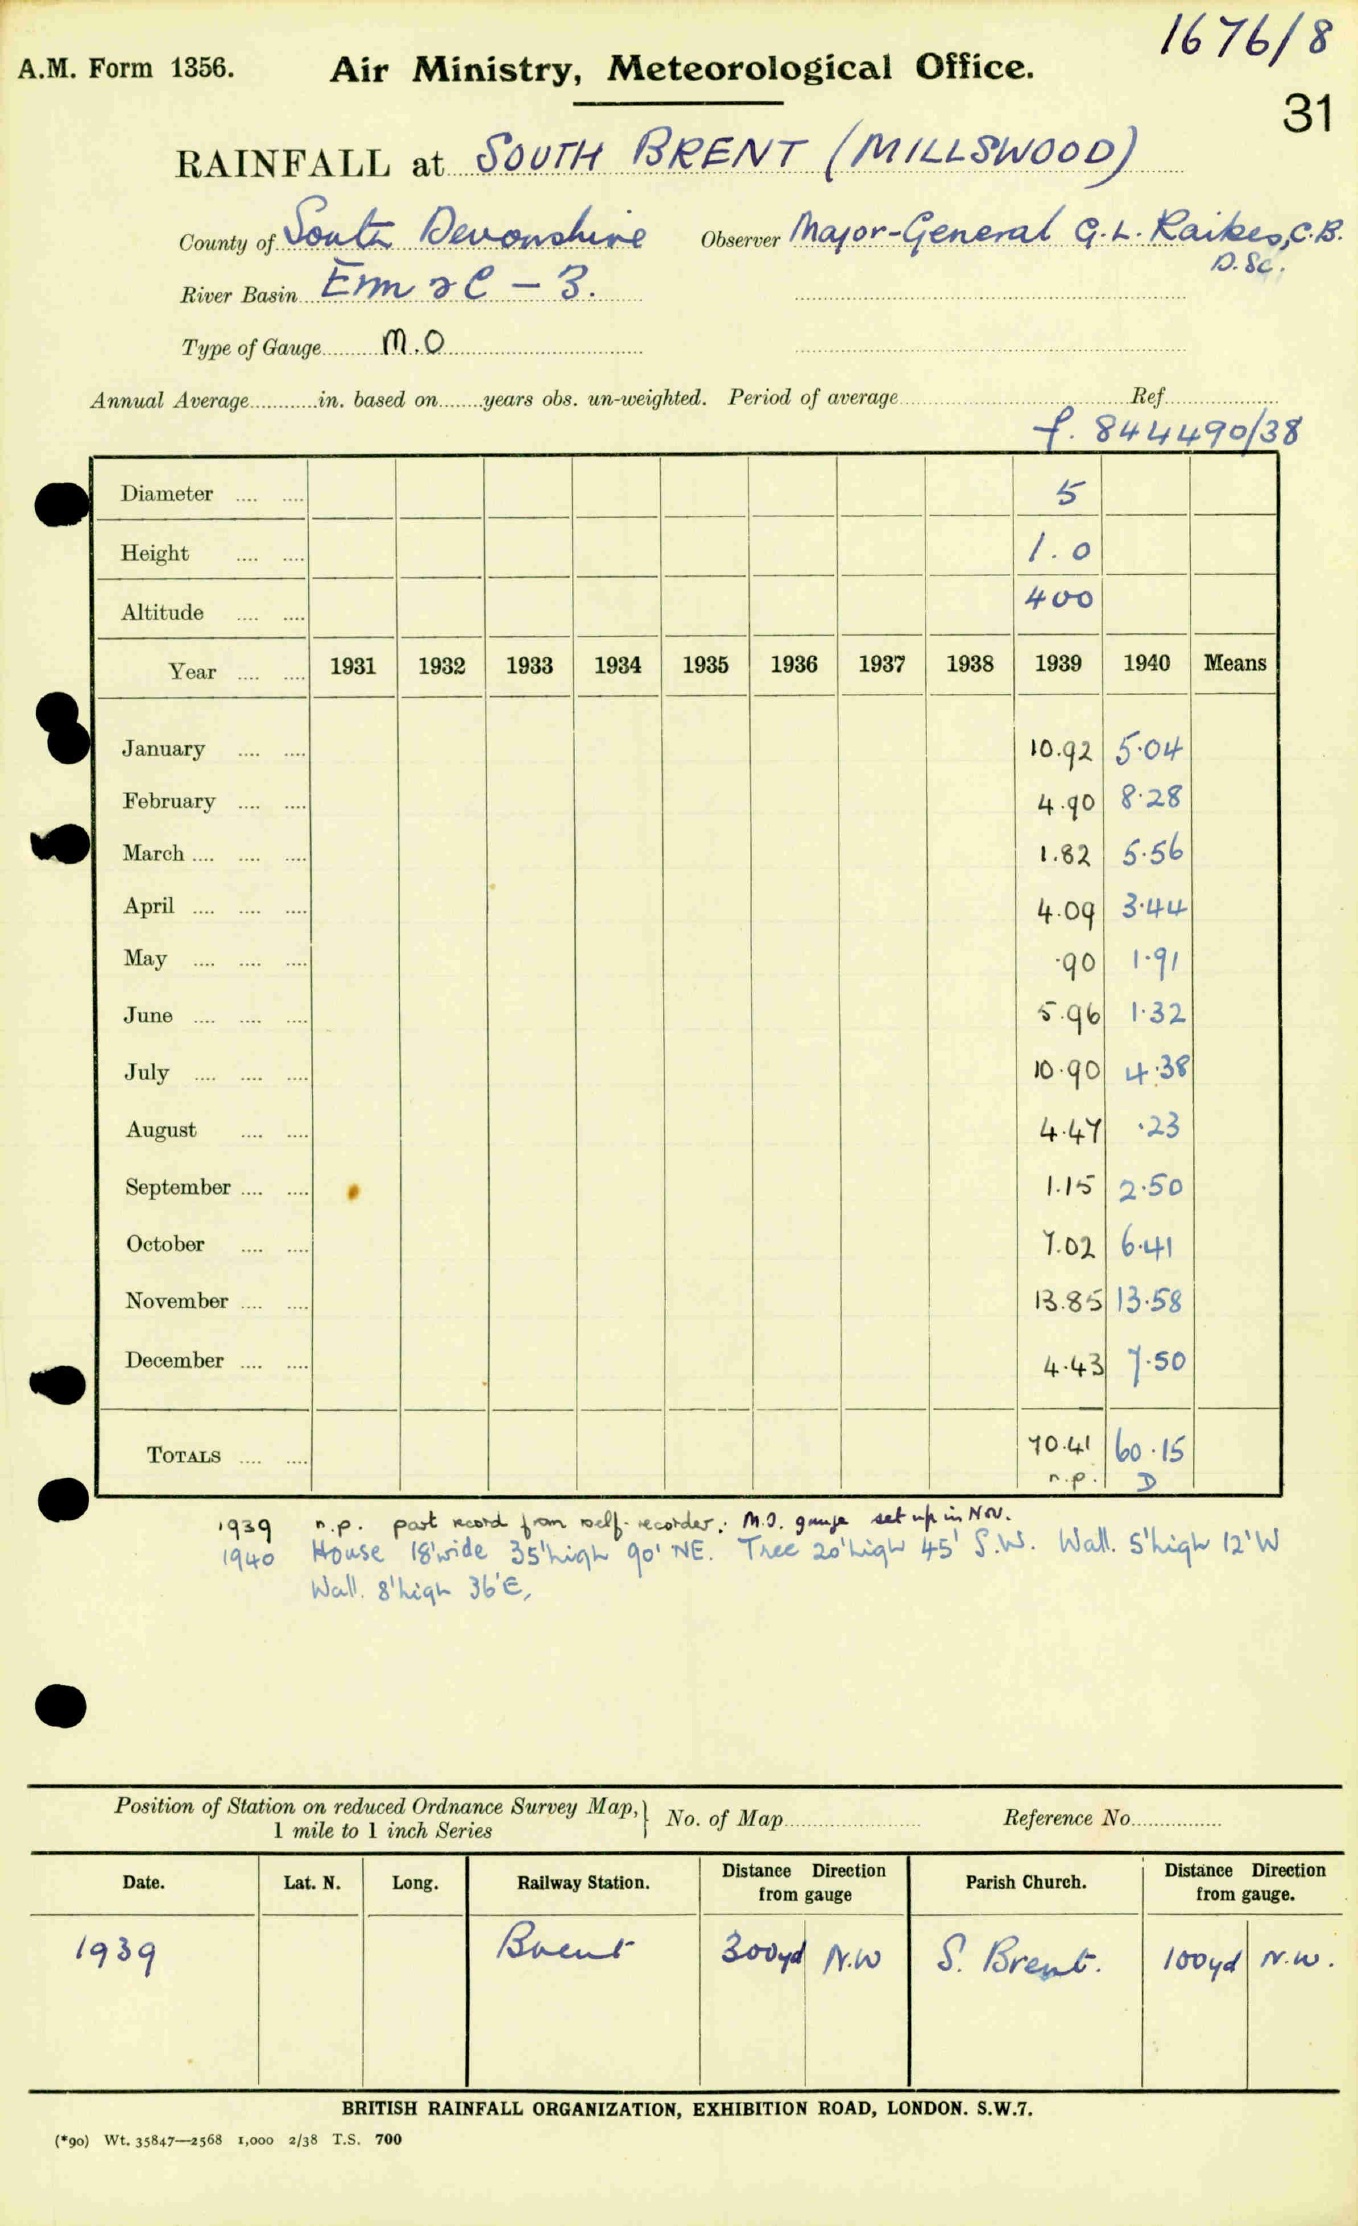 1676/8
A.M. Form 1356. Air Ministry, Meteorological Office.
31
RAINFALL at SOUTH BRENT (MILLSWOOD)
County of South Devonshire Observer Major-General G.L. Raikes, C.B.
D.Sc.
River Basin Erm &c - 3.
Type of Gauge M.O
Annual Average............in. based on........years obs. un-weighted. Period of average.............. Ref..............
f. 844490/38
Diameter .... .... 5
Height .... .... 1.0
Altitude .... .... 400
Year .... .... 1931 1932 1933 1934 1935 1936 1937 1938 1939 1940 Means
January .... .... 10.92 5.04
February .... .... 4.90 8.28
March .... .... .... 1.82 5.56
April .... .... .... 4.09 3.44
May .... .... .... .90 1.91
June .... .... .... 5.96 1.32
July .... .... .... 10.90 4.38
August .... .... 4.47 .23
September .... .... 1.15 2.50
October .... .... 7.02 6.41
November .... .... 13.85 13.58
December .... .... 4.43 7.50
TOTALS .... .... 70.41 60.15
n.p. D
1939 n.p. part record from self-recorder; M.O. gauge set up in Nov.
1940 House 18'wide 35'high 90' NE. Tree 20'high 45' S.W. Wall. 5'high 12'W
Wall. 8'high 36'E,
Position of Station on reduced Ordnance Survey Map, } No. of Map.............. Reference No..............
1 mile to 1 inch Series
Date. Lat. N. Long. Railway Station. Distance Direction from gauge Parish Church. Distance Direction from gauge.
1939 Brent 300yd N.W S. Brent. 100yd N.W.
BRITISH RAINFALL ORGANIZATION, EXHIBITION ROAD, LONDON. S.W.7.
(*90) Wt. 35847—2568 1,000 2/38 T.S. 700